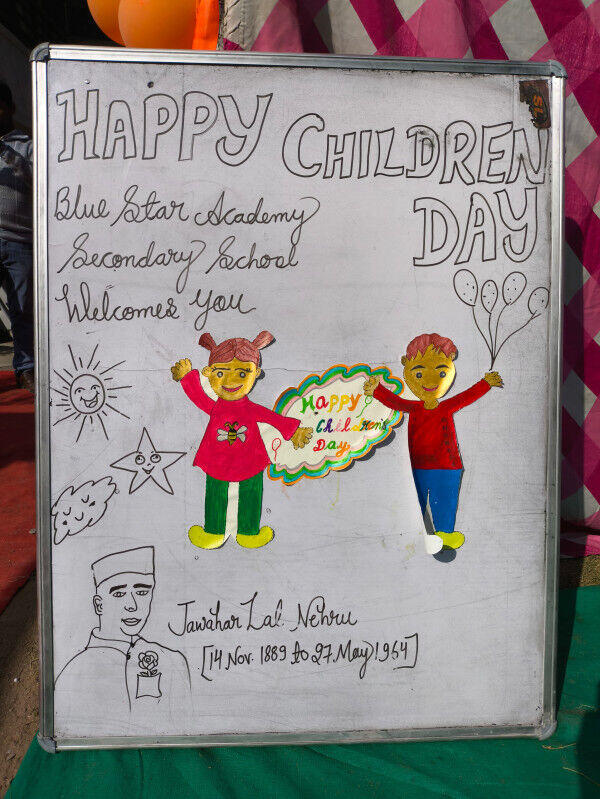 HAPPY CHILDREN
DAY
Blue Star Academy
Secondary School
Welcomes you
Happy
Children's
Day
Jawahar Lal Nehru
[14 Nov. 1889 to 27 May 1964]